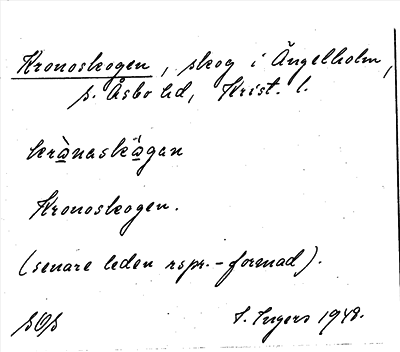 Kronoskogen, skog i Ängelholm,
s. Åsbo hd, Krist. l.
krònaskògan
Kronoskogen.
(senare leden rspr.-formad).
I. Ingers 1948.